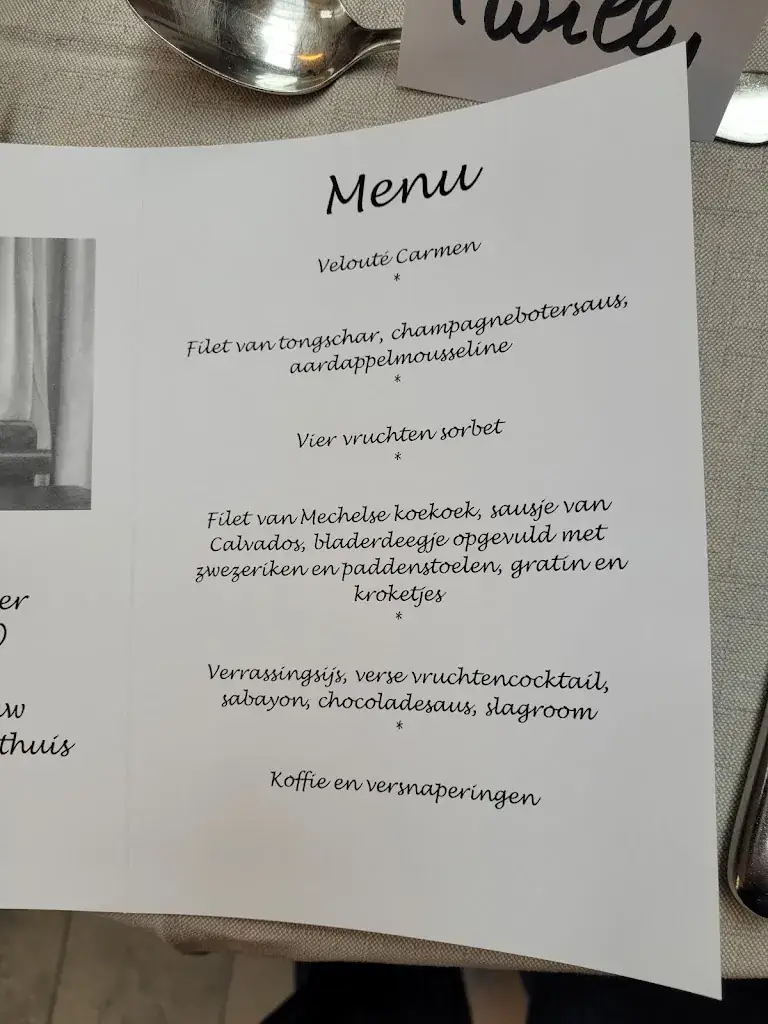 Willy
Menu
Velouté Carmen
*
Filet van tongschar, champagnebotersaus,
aardappelmousseline
*
Vier vruchten sorbet
*
Filet van Mechelse koekoek, sausje van
Calvados, bladerdeegje opgevuld met
zwezeriken en paddenstoelen, gratin en
kroketjes
*
Verrassingsijs, verse vruchtencocktail,
sabayon, chocoladesaus, slagroom
*
Koffie en versnaperingen
er
)
w
thuis